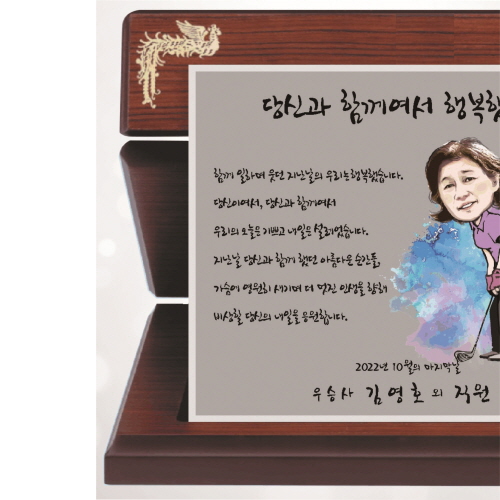 당신과 함께여서 행복했
함께 일하며 웃던 지난날의 우리는 행복했습니다.
당신이여서, 당신과 함께여서
우리의 오늘은 기쁘고 내일은 설레었습니다.
지난날 당신과 함께 했던 아름다운 순간들,
가슴에 영원히 새기며 더 멋진 인생을 향해
비상할 당신의 내일을 응원합니다.
2022년 10월의 마지막날
우승사 김영호 외 직원